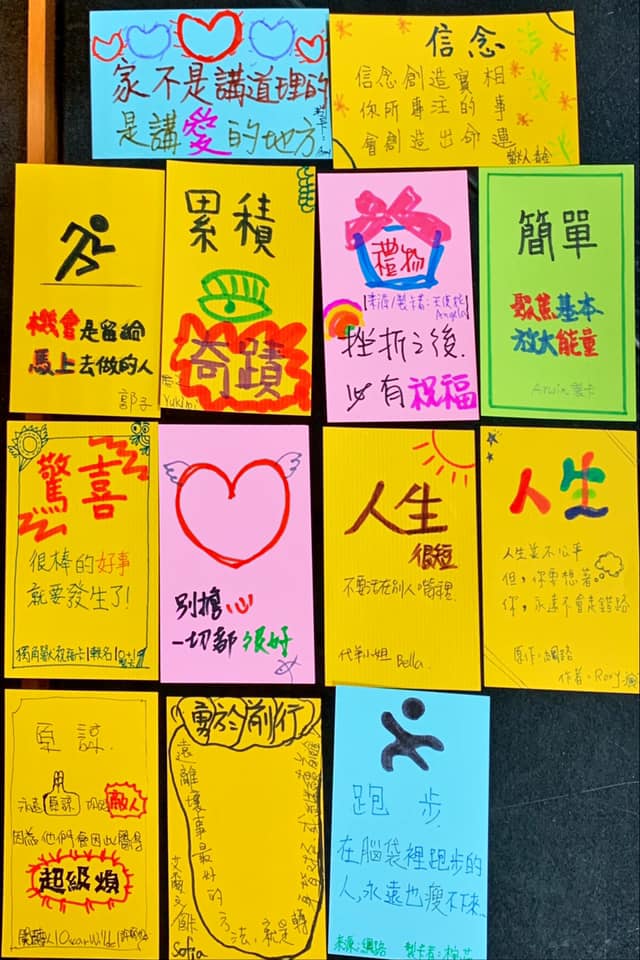 家不是講道理的
是講愛的地方
信念
信念創造實相
你所專注的事
會創造出命運
機會是留給
馬上去做的人
郭子
累積
奇蹟
Yukimi
禮物
Angela
挫折之後
必有祝福
簡單
聚焦基本
放大能量
Arwin 製卡
驚喜
很棒的好事
就要發生了!
別擔心
一切都很好
人生
很短
不要活在別人嘴裡
代筆小姐 Bella.
人生
人生並不公平
但,你要想著
你,永遠不會走錯路
原作:網路
作者:Rory
原諒
永遠原諒 敵人
因為他們會因此覺得
超級煩
Oscar Wilde
勇於前行
遠離壞事最好的方法,就是
Sofia
跑步
在腦袋裡跑步的
人,永遠也瘦不下來
來源:網路 製卡者: